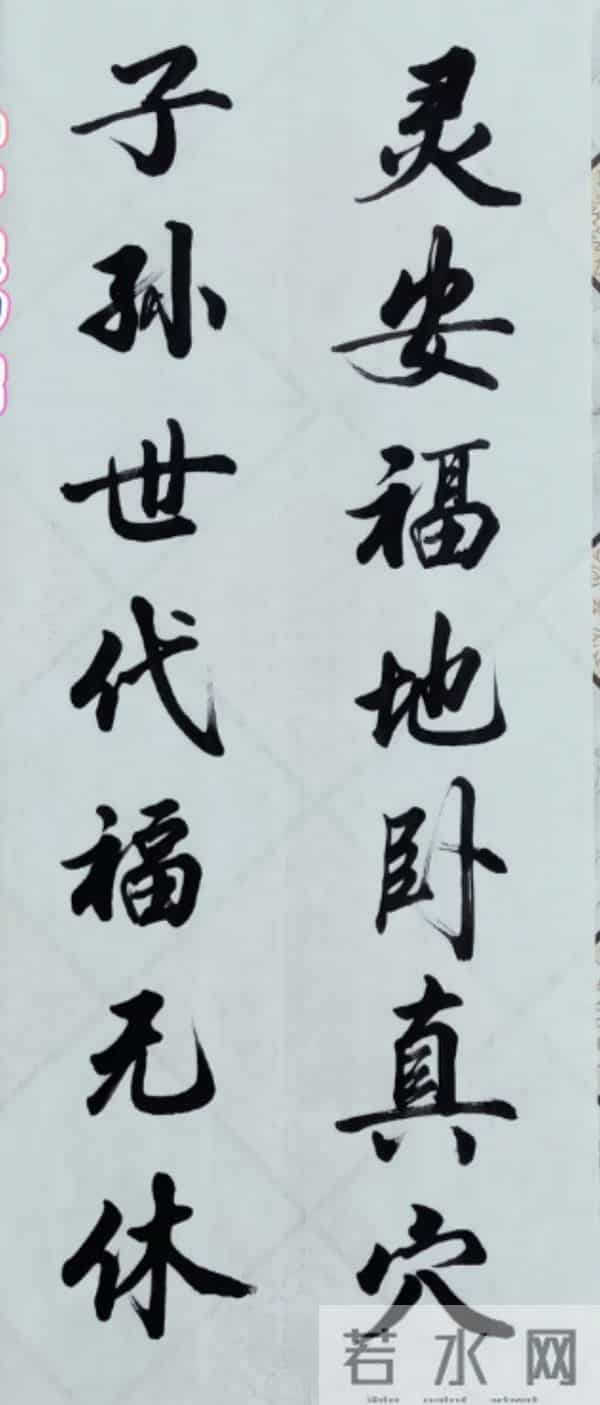 灵安福地卧真穴
子孙世代福无休
若水网